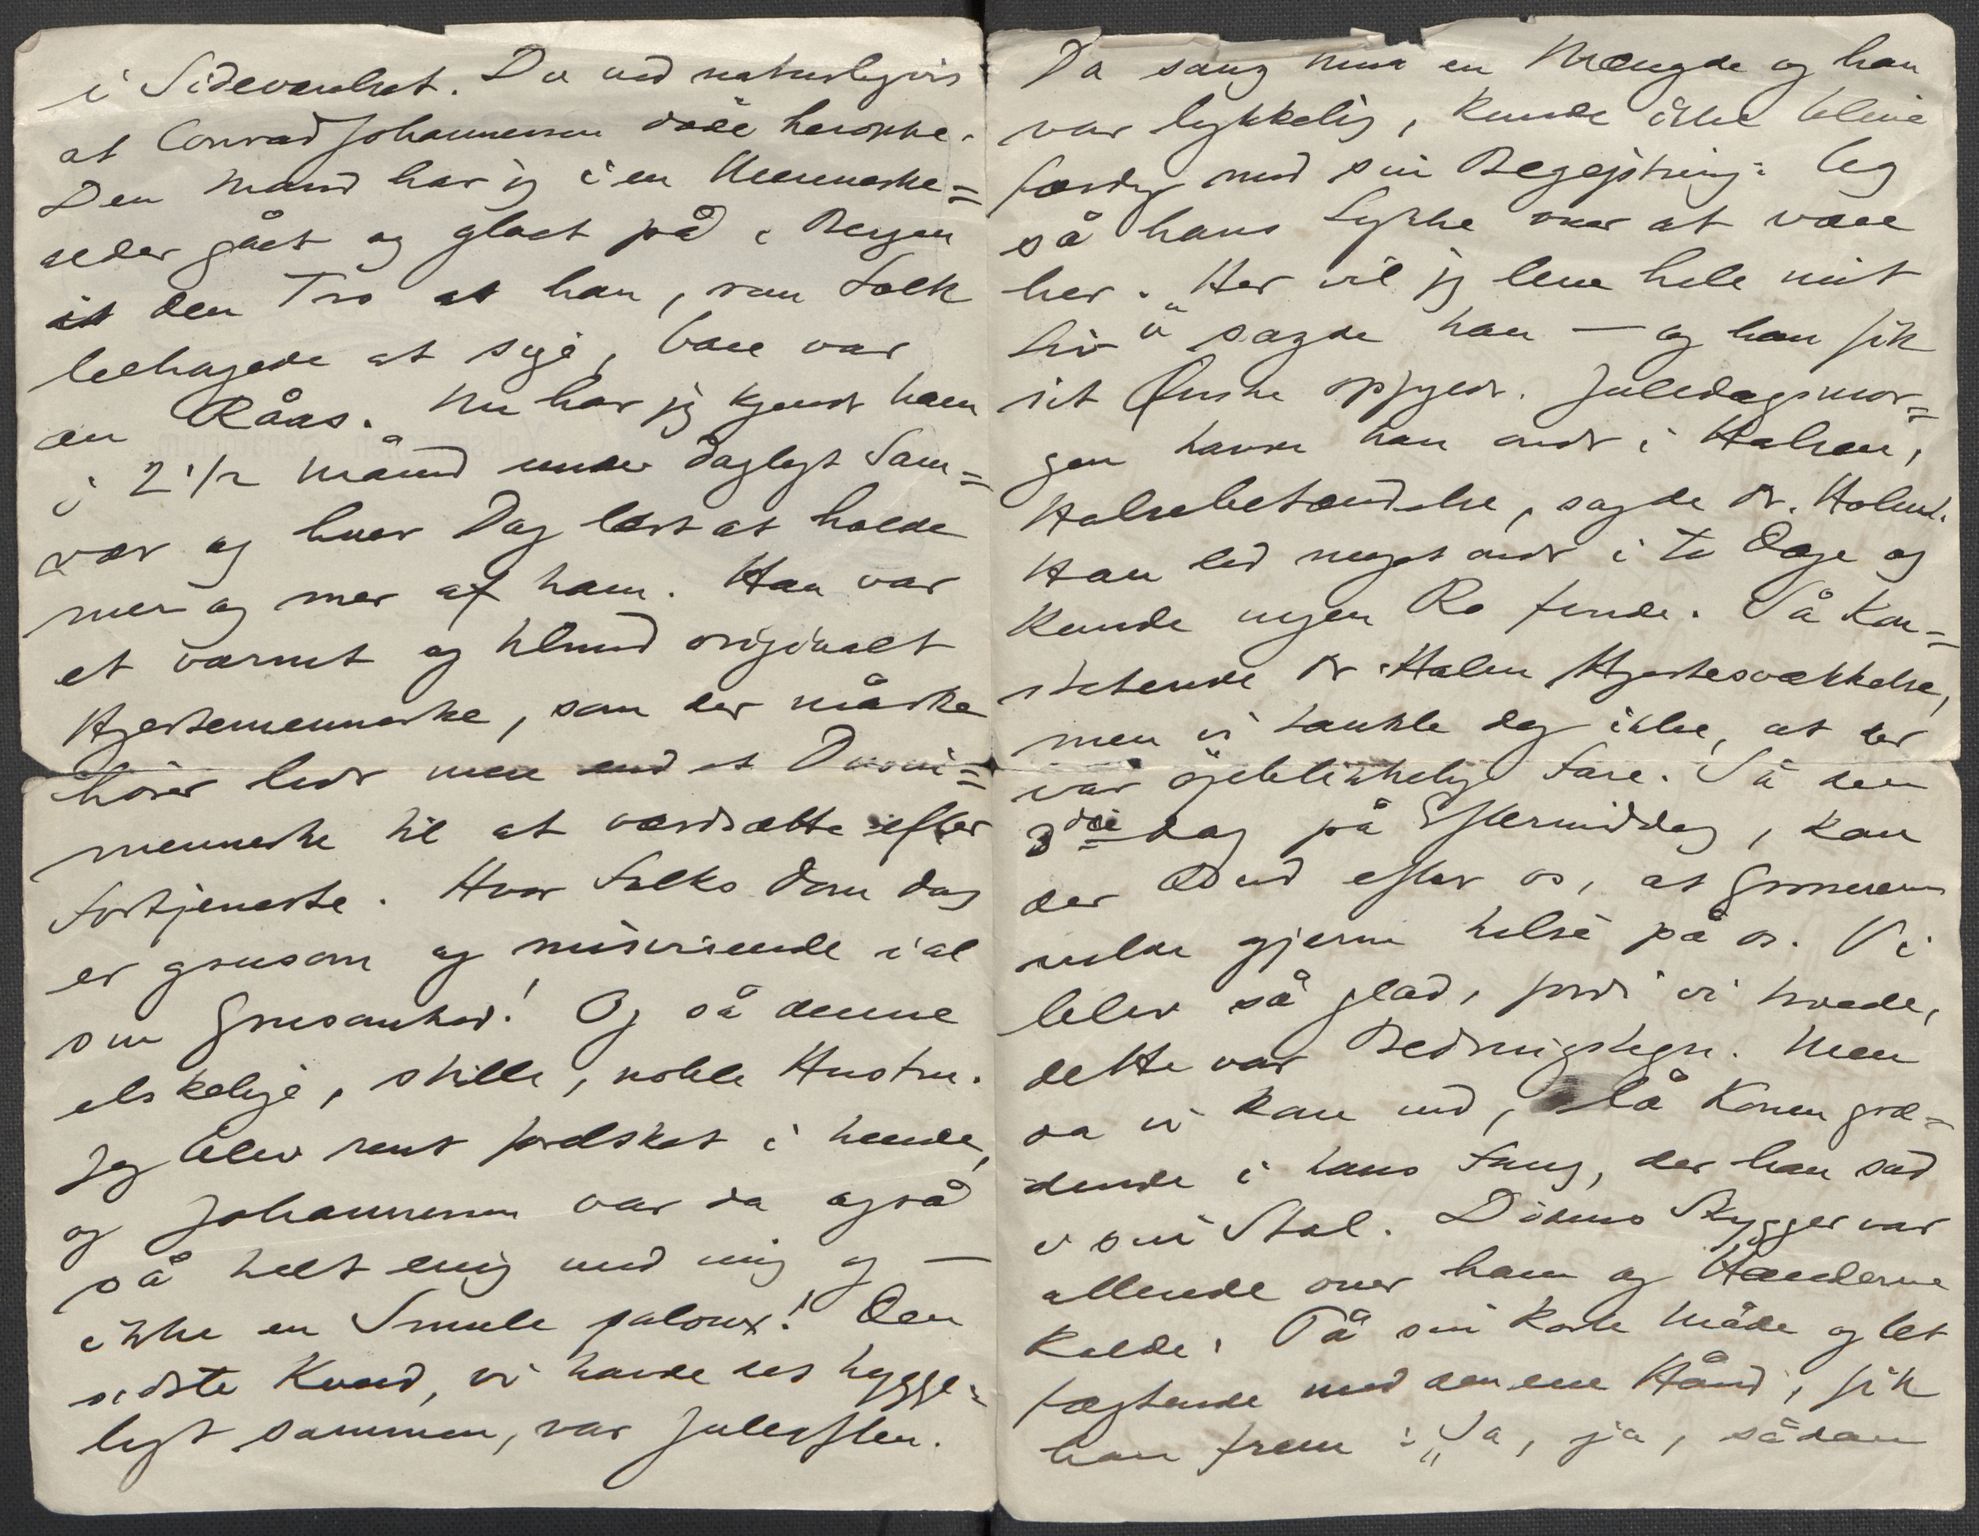 i Sideværelset. Du ved naturligvis
at Conrad Johannessen døde heroppe.
Den Mand har jeg i en Menneske=
alder gået og gloet på i Bergen
i den Tro at han, som Folk
behagede at sige, bare var
en Råas. Nu har jeg kjendt ham
i 2 1/2 Måned under dagligt Sam=
vær og hver Dag lært at holde
mer og mer af ham. Han var
et varmt og tillund originalt
Hjertemenneske, som der måske
hører lidt mere end et
menneske til at værdsætte efter
Fortjeneste. Hvor Folks Dom dog
er grusom og misvisende i al
sin Grusomhed! Og så denne
elskelige, stille, noble Hustru.
Jeg blev rent forelsket i hende,
og Johannessen var da også
så helt enig med mig og —
ikke en Smule jaloux! Den
sidste Kveld, vi havde det hygge=
ligt sammen, var Juleaften.
Da sang Nina en Mængde og han
var lykkelig, kunde ikke blive
færdig med sin Begejstring: Og
så hans Lykke over at være
her. "Her vil jeg leve hele mit
Liv" sagde han — og han fik
sit Ønske opfyldt. Juledagsmor=
gen havde han ondt i Halsen,
Halsebetændelse, sagde Dr. Holm.
Han led meget ondt i to Dage og
kunde ingen Ro finde. Så kon=
staterede Dr. Holm Hjertesvækkelse,
men vi tænkte dog ikke, at der
var øjeblikkelig Fare. Så den
3die Dag på Eftermiddag, kom
der Bud efter os, at
vilde gjerne hilse på os. Vi
blev så glad, fordi vi troede,
dette var Bedringstegn. Men
da vi kom ind, lå Konen græ=
dende i hans Fang, der han sad
i sin Stol. Dødens Skygger var
allerede over ham og Hænderne
kolde. På sin korte Måde og let
fægtende med den ene Hånd, fik
han frem: "Ja, ja, sådan